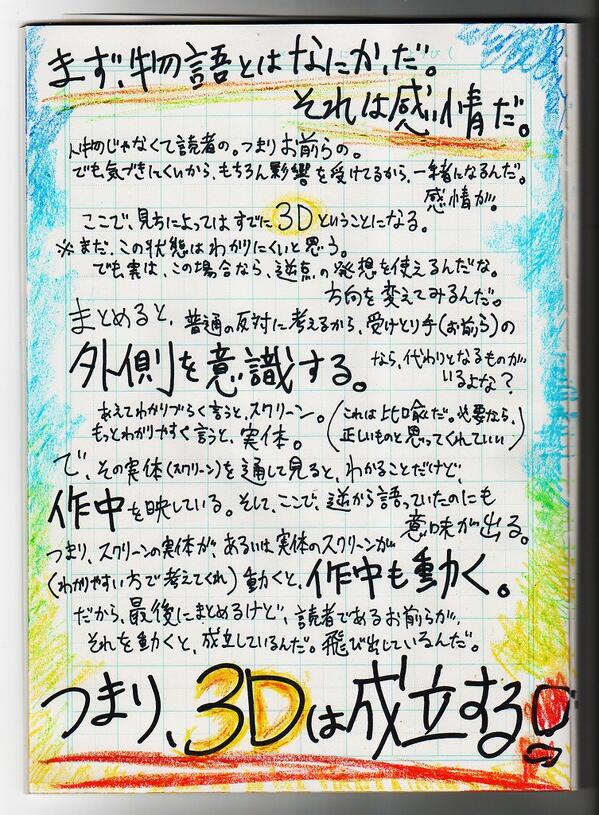 まず、物語とはなにか、だ。
それは感情だ。
人物じゃなくて読者の。つまりお前らの。
でも気づきにくいから、もちろん影響を受けてるから、一緒になるんだ。
感情が。
ここで、見方によってはすでに3Dということになる。
※まだ、この状態はわかりにくいと思う。
でも実は、この場合なら、逆点の発想を使えるんだな。
方向を変えてみるんだ。
まとめると、普通の反対に考えるから、受けとり手(お前ら)の
外側を意識する。
なら、代わりとなるものが
いるよな?
あえてわかりづらく言うと、スクリーン。
もっとわかりやすく言うと、実体。
(これは比喩だ。必要なら、
正しいものと思ってくれていい)
で、その実体(スクリーン)を通して見ると、わかることだけど、
作中を映している。そして、ここで、逆から語っていたのにも
意味が出る。
つまり、スクリーンの実体が、あるいは実体のスクリーンが
(わかりやすい方で考えてくれ)動くと、作中も動く。
だから、最後にまとめるけど、読者であるお前らが、
それを動くと、成立しているんだ。飛び出しているんだ。
つまり、3Dは成立する